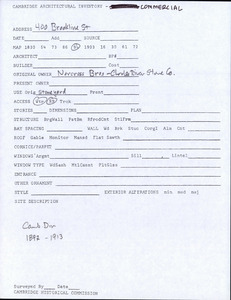 CAMBRIDGE ARCHITECTURAL INVENTORY - COMMERCIAL
ADDRESS 400 Brookline St
DATE Ads SOURCE
MAP 1830 54 73 86 94 1903 16 30 61 73
ARCHITECT BP#
BUILDER Cost
ORIGINAL OWNER Norcross Bros - Stone Co.
PRESENT OWNER
USE Orig Stoneyard Prsnt
ACCESS Truck
STORIES DIMENSIONS PLAN
STRUCTURE BrgWall PstBm RfrcdCmt Stlfrm
BAY SPACING WALL Wd Brk Stuc Corgl Alm Cmt
ROOF Gable Monitor Mansd Flat Sawth
CORNICE/PARPET
WINDOWS Sill Lintel
WINDOW TYPE
ENTRANCE
OTHER ORNAMENT
STYLE EXTERIOR ALTERATIONS min mod maj
SITE DESCRIPTION
Camb Dir
1892 - 1913
Surveyed By Date
CAMBRIDGE HISTORICAL COMMISSION